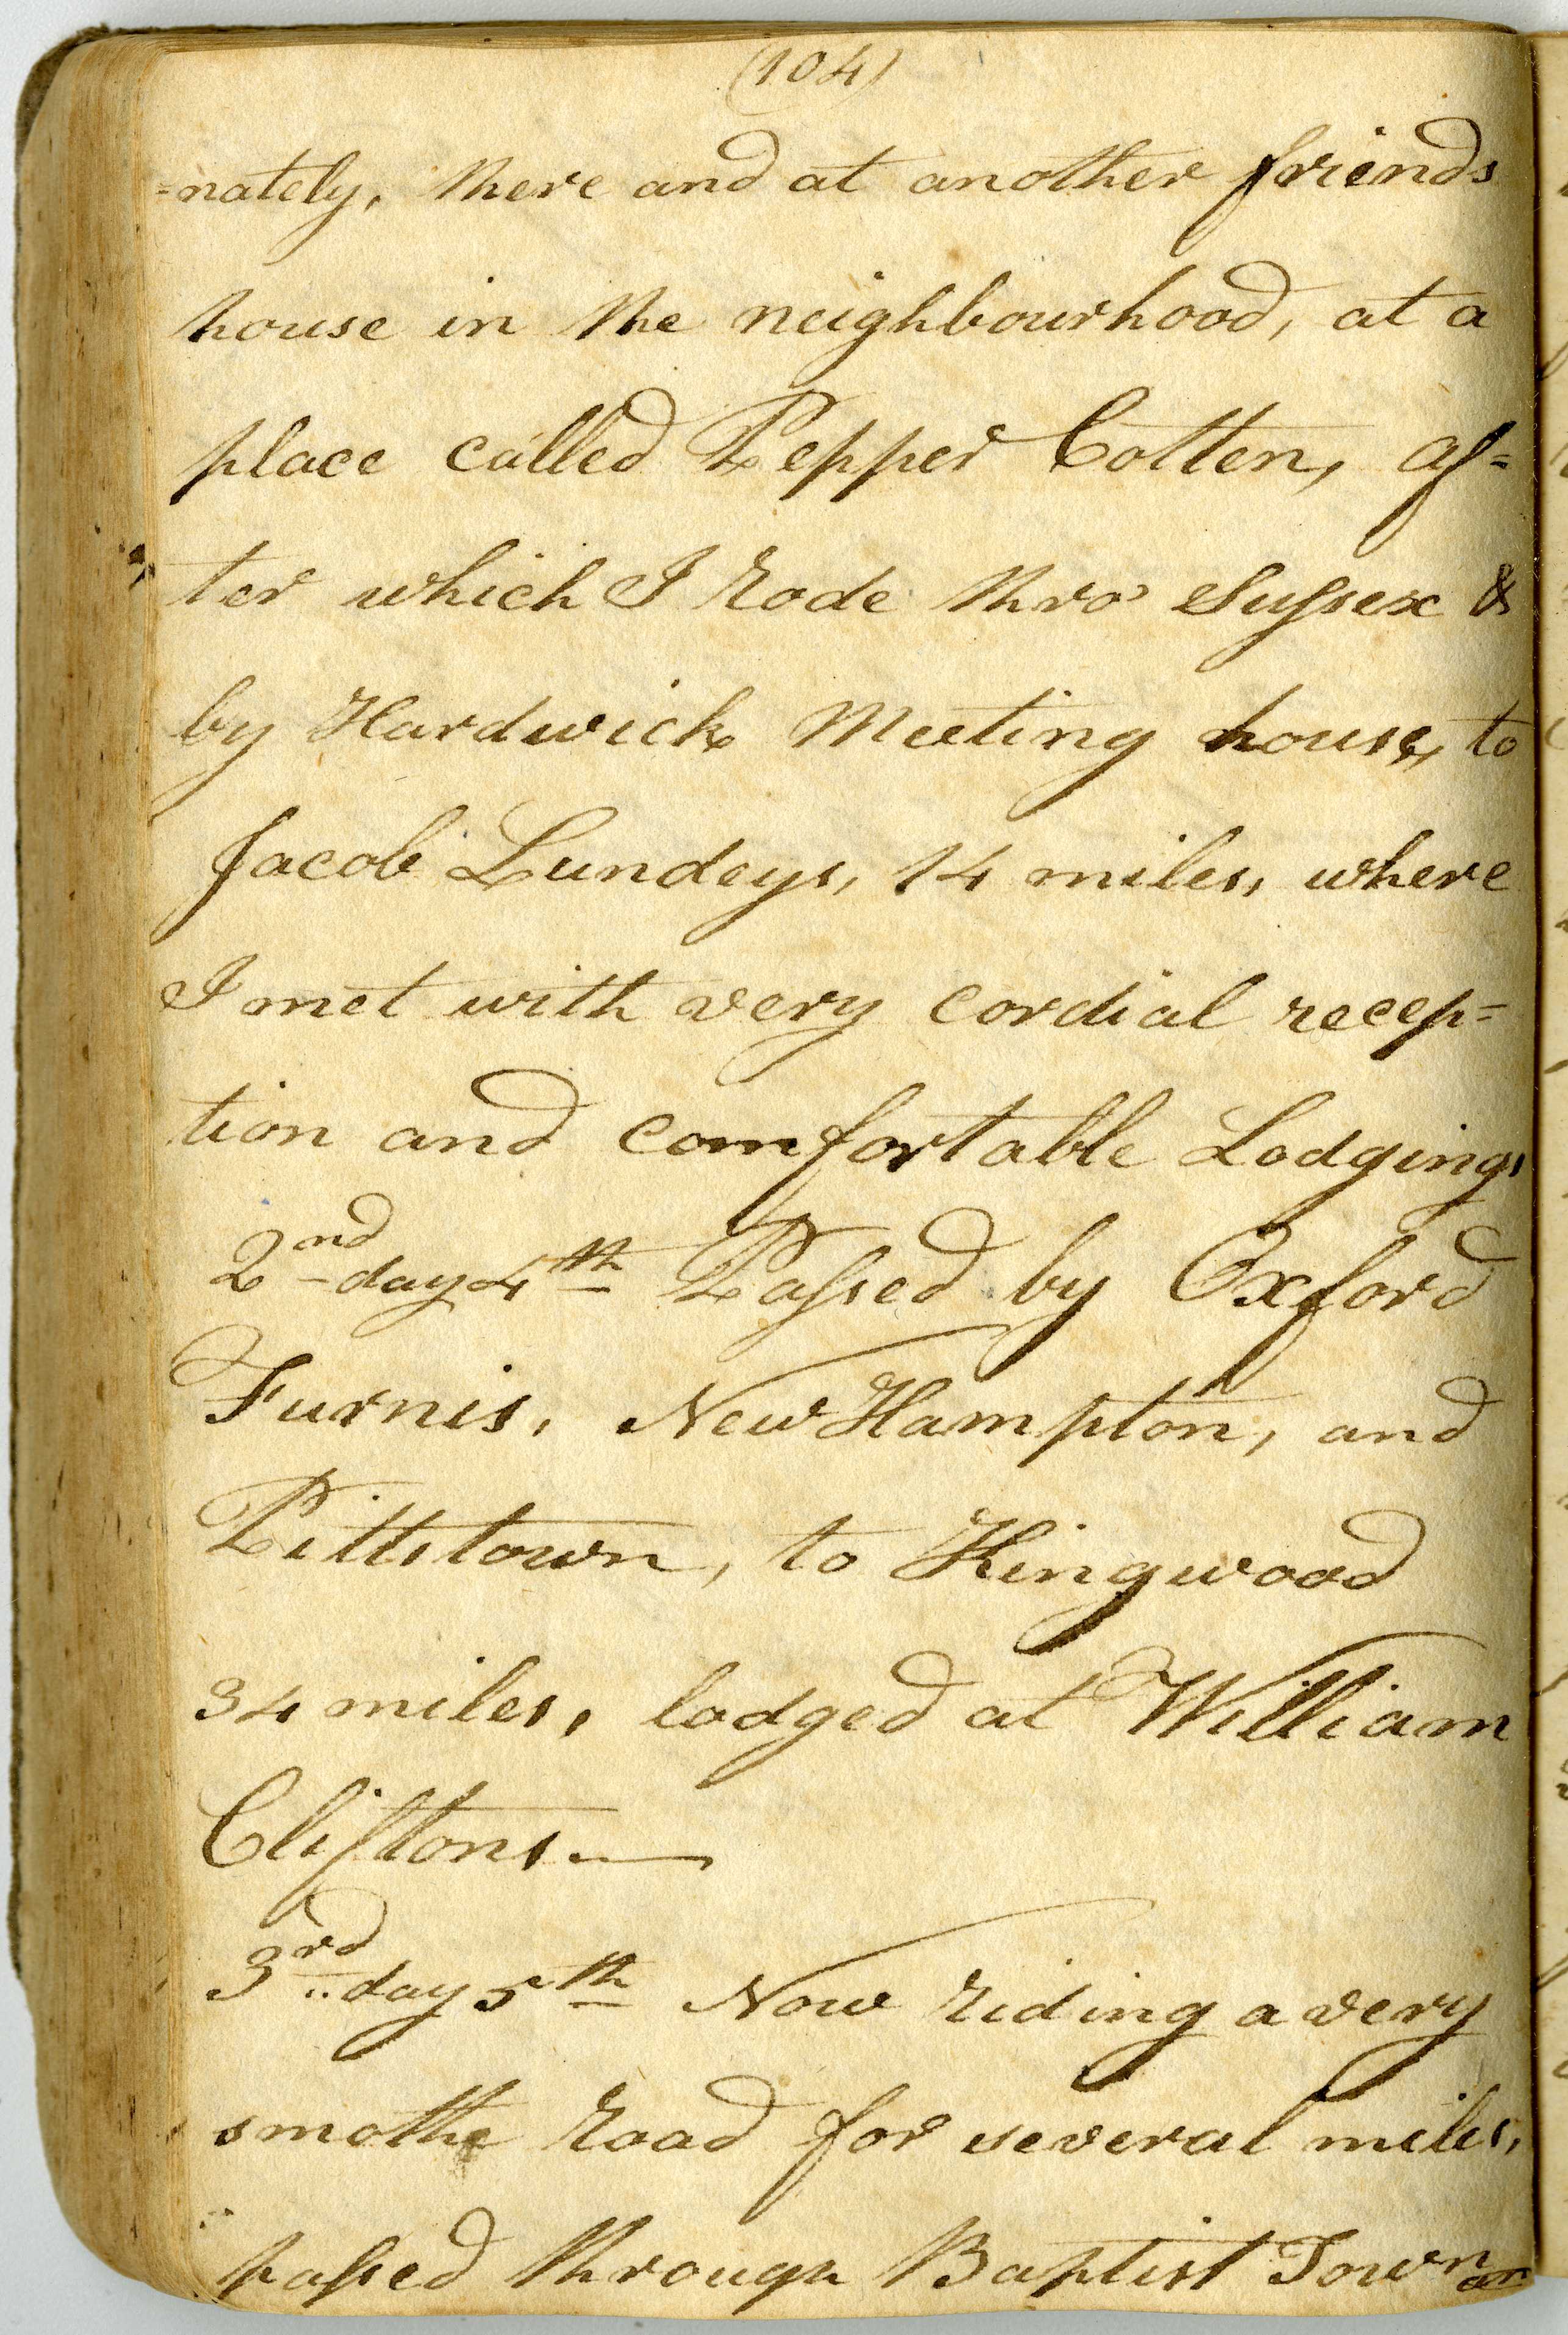 (104)
=nately, there and at another friends
house in the neighbourhood, at a
place called Pepper Cotten, af=
ter which I rode thro' Sussex &
by Hardwick Meeting house, to
Jacob Lundeys, 14 miles, where
I met with very cordial recep=
tion and comfortable Lodging,
2nd day 4th Passed by Oxford
Furnis, New Hampton, and
Pittstown, to Kingwood
34 miles, lodged at William
Cliftons.—
3rd day 5th Now riding a very
smothe road for several miles,
passed through Baptist Town